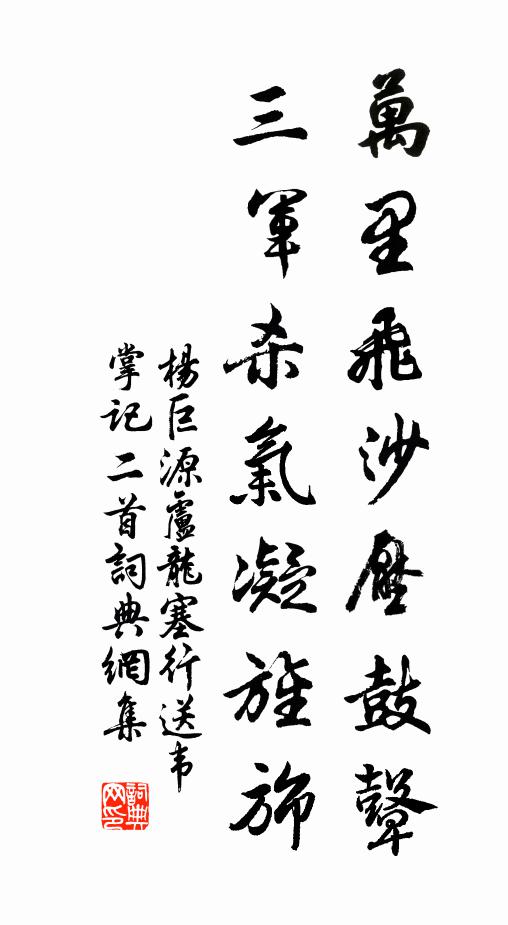 萬里飛沙壓鼓鼙
三軍杀氣凝旌旆
楊巨源盧龍塞行送韦
掌记二首詞典網集
詞典网印